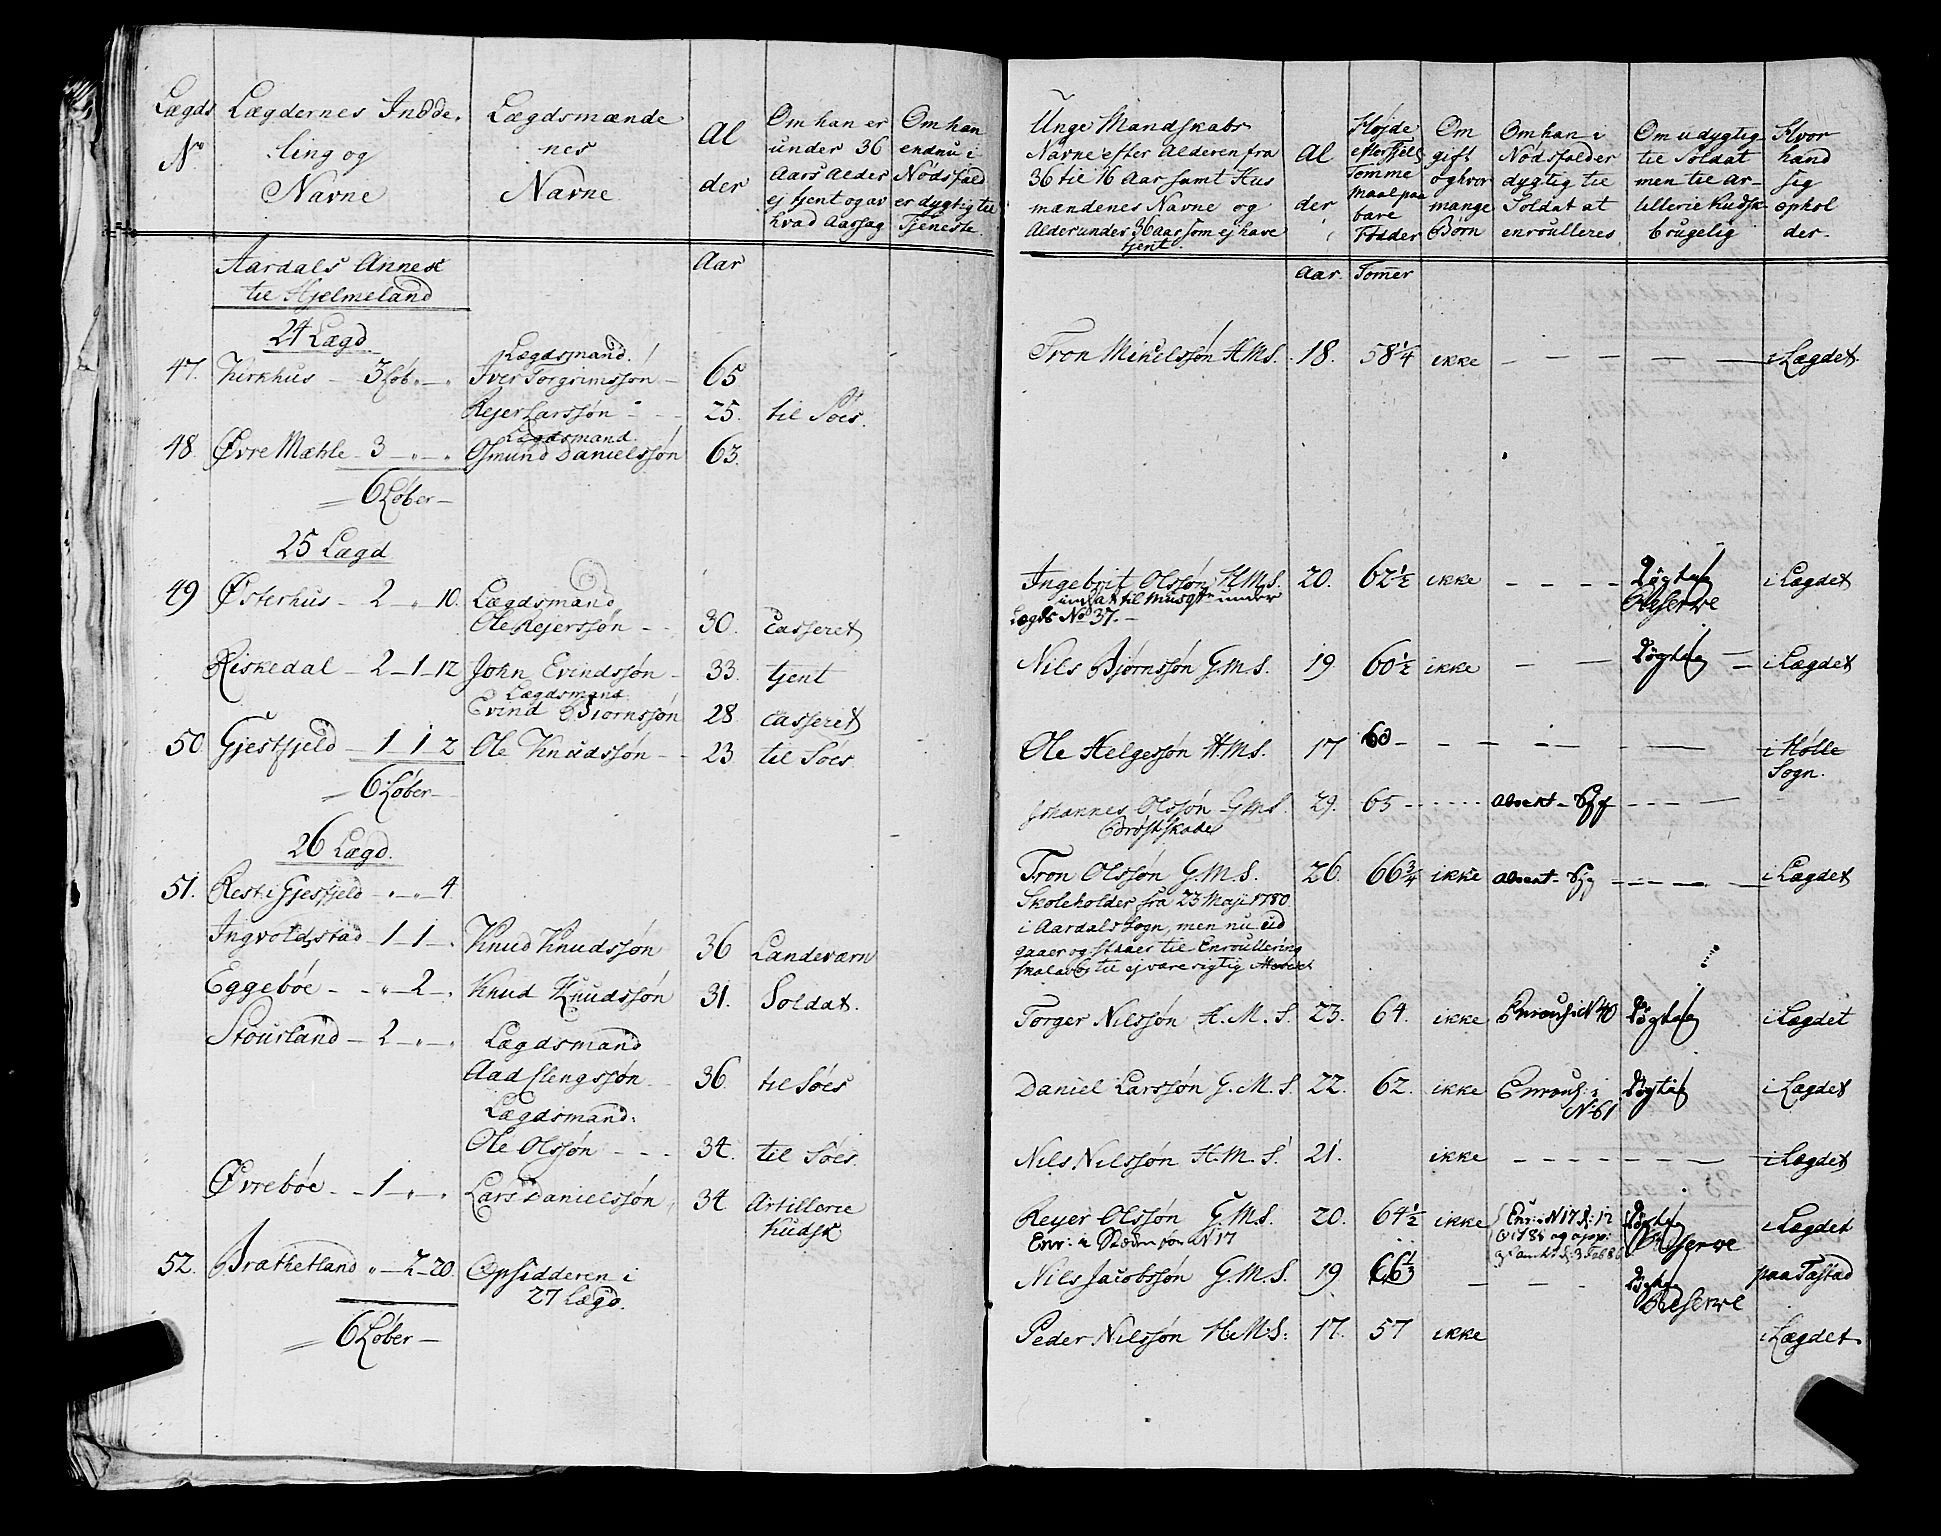 Lægds
No
Lægdernes Indde,
ling og
Navne
Lægdsmænde
nes
Navne
Al
der
Om han er
under 36
Aars Alder
ej tjent og av
hvad Aarsag
Om han
endnu i
Nødsfald
er dygtig til
Tjeneste
Aardals Annex
til Hjelmeland
Aar
24 Lægd
Lægdsmand.
47. 3 Løb Iver Torgrimssøn 65
Rejer Larssøn 25. til Søes.
Lægdsmand.
48. Øvre Mæhle 3 Osmund Danielssøn 63.
6 Løber
25 Lægd
49 Østerhus 2 10. Lægdsmand
Ole Rejerssøn 30. Casseret
Riskedal 2 1 12 John Evindssøn 33. tjent
Lægdsmand
Evind Biornssøn 28 casseret
50 Gjestfjeld 1 1 2 Ole Knudssøn 23 til Søes
6 Løber
26 Lægd.
51. Rest i Gjesfjeld 4.
Ingvoldstad 1 1 Knud Knudssøn 36 Landeværn
Eggebøe 2 Knud Knudssøn 31. Soldat.
Stourland 2 Lægdsmand
Aad Elengssøn 36. til Søes
Lægdsmand:
Ole Olssøn 34. til Søes.
Øvrebøe 1 Lars Danielssøn 34 Artillerie
Kudsk
52. Brathetland 2 20. Opsidderen i
27 Lægd.
6 Løber
Unge Mandskabs
Navne efter Alderen fra
36 til 16 Aar samt Hus
mændenes Navne og
Alder under 36 Aar som ej have
tjent
Al
der
Højde
efter
Tomme
Maal paa
bare
Fødder
Om
gift
og hvor
mange
Børn
Om han i
Nødsfalder
dygtig til
Soldat at
enroulleres
Om udygtig
til Soldat
men til Ar-
tillerie Kudsk
brugelig
Hvor
hand
sig
ophol
der.
Aar Tomer
Tron Mikelssøn H.M.S. 18. 58 1/4 ikke i Lægdet
Ingebrit Olssøn H.M.S. 20. 62 1/2 ikke Døgtig i Lægdet
til under Reserve
Lægds No 37.
Nils Bjørnssøn G.M.S. 19 60 1/2 ikke Døgtig i Lægdet
Ole Helgessøn H.M.S. 17 60 i Holle
Sogn.
Johannes Olssøn G.M.S. 29. 65
Brøstskade
Tron Olssøn G.M.S. 26. 66 3/4 ikke i Lægdet
Skoleholder fra 23 Maji 1780
i Aardals Sogn, men nu ud
gaaer og staaer til Enroullering
Torger Nilssøn H.M.S. 23. 64. ikke N 40 Døgtig i Lægdet
Daniel Larssøn G.M.S. 22. 62. ikke i Døgtig i Lægdet
N 61
Nils Nilssøn H.M.S. 21. ikke i Lægdet
Reyer Olssøn G.M.S. 20. 64 1/2 ikke Døgtig i Lægdet
N 17 Reserve
Nils Jacobssøn G.M.S. 19 Dygtig paa Tastad
Reserve
Peder Nilssøn H.M.S. 17. 57 ikke i Lægdet.